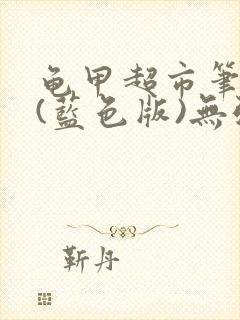 龟甲超市筆
(藍色版)無
靳丹